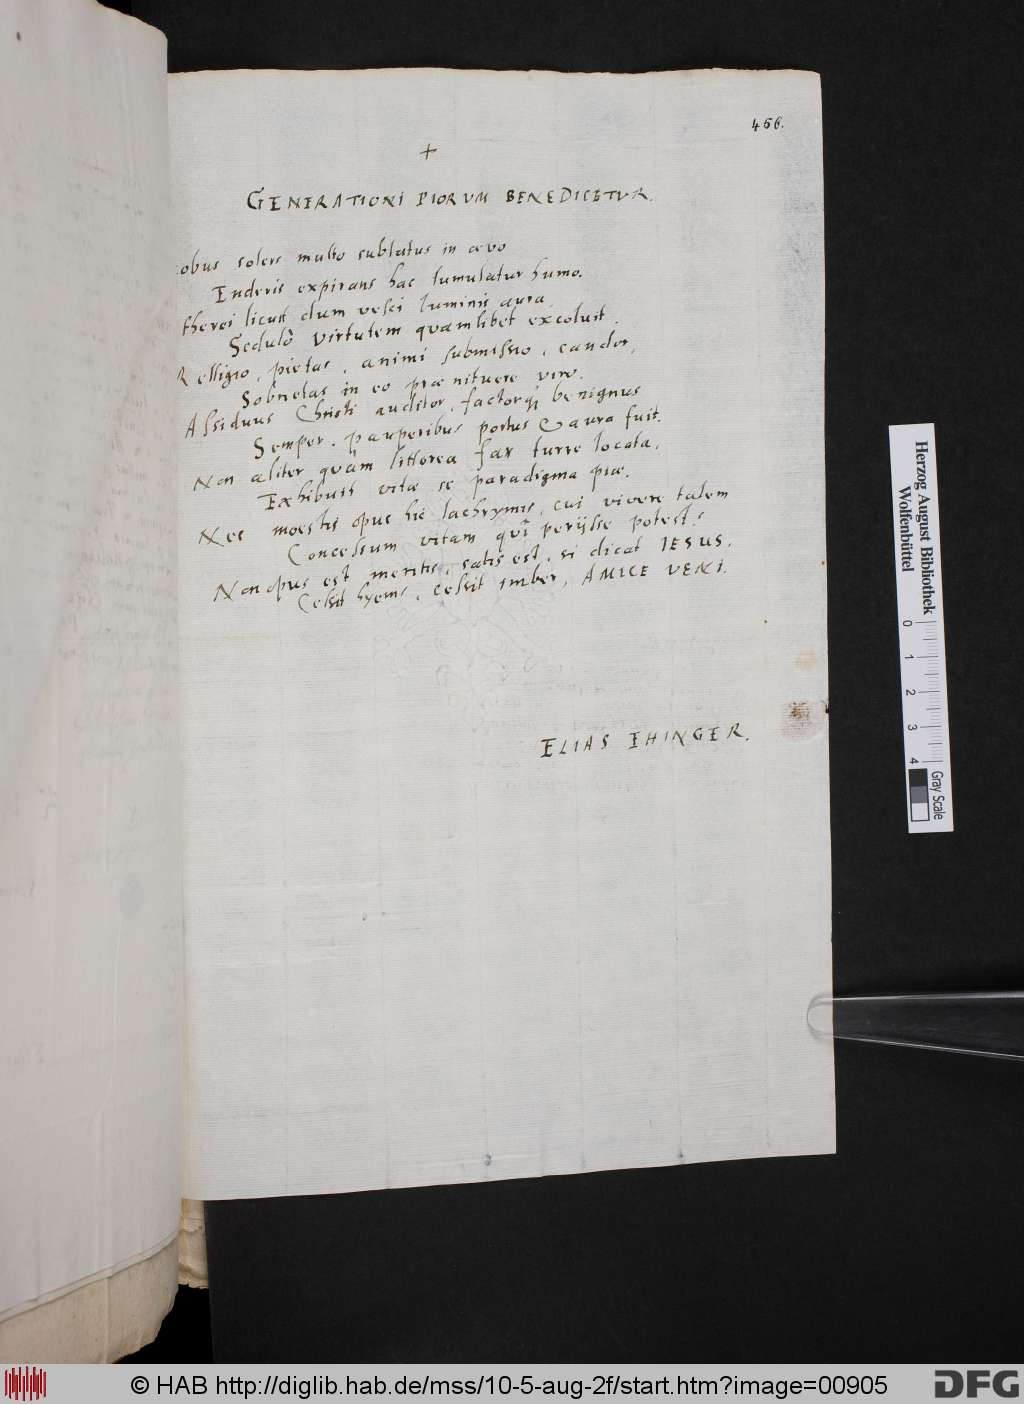 456.
+
GENERATIONI PIORUM BENEDICETUR.
cobus solers multo sublatus in ævo
Enderis expirans hac tumulatur humo.
therei licuit dum vesci luminis aura,
Sedulò virtutem quamlibet excoluit.
Relligio, pietas, animi submissio, candor,
Sobrietas in eo prænituere viro.
Assiduus Christi auditor, factorq; benignus
Semper, pauperibus portus & aura fuit.
Non aliter quàm littorea fax turre locata,
Exhibuit vitæ se paradigma piæ.
Nec moestis opus hic lachrymis, cui vivere talem
Concessum vitam quî perijsse potest?
Non opus est meritis, satis est, si dicat IESUS,
Cessit hyems, cessit imber, AMICE VENI.
ELIAS EHINGER.
Herzog August Bibliothek
Wolfenbüttel
0 1 2 3 4
Gray Scale
© HAB http://diglib.hab.de/mss/10-5-aug-2f/start.htm?image=00905
DFG